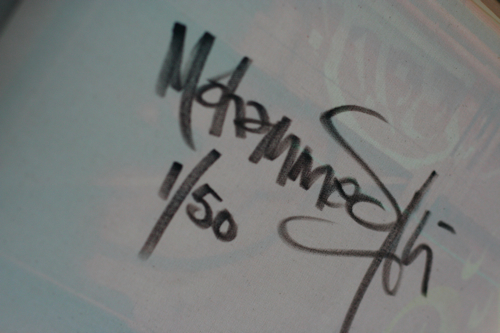 Mohammed Ali
1/50